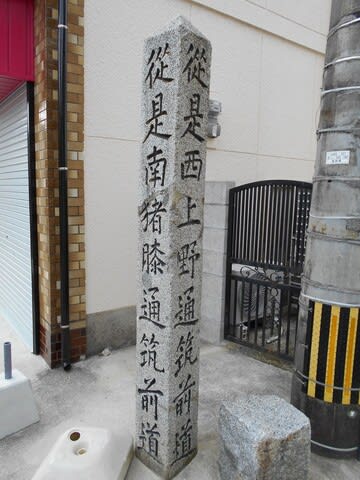 従是西上野通筑前道
従是南猪膝通筑前道